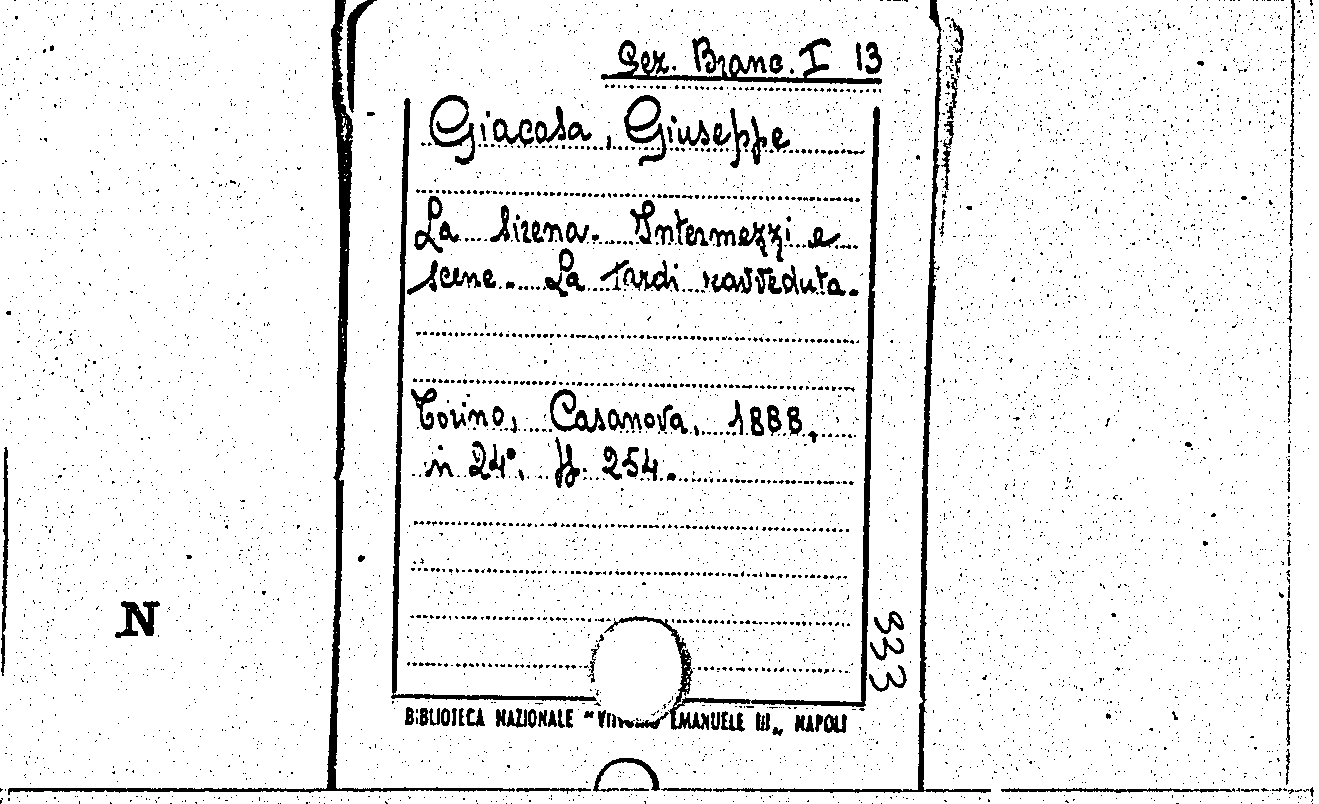 Sez. Branc. I 13
Giacosa, Giuseppe
La Sirena. Intermezzi e
scene. La tardi ravveduta.
Torino, Casanova, 1888,
in 24°. ff. 254.
333
N
BIBLIOTECA NAZIONALE "VITTORIO EMANUELE III„ NAPOLI